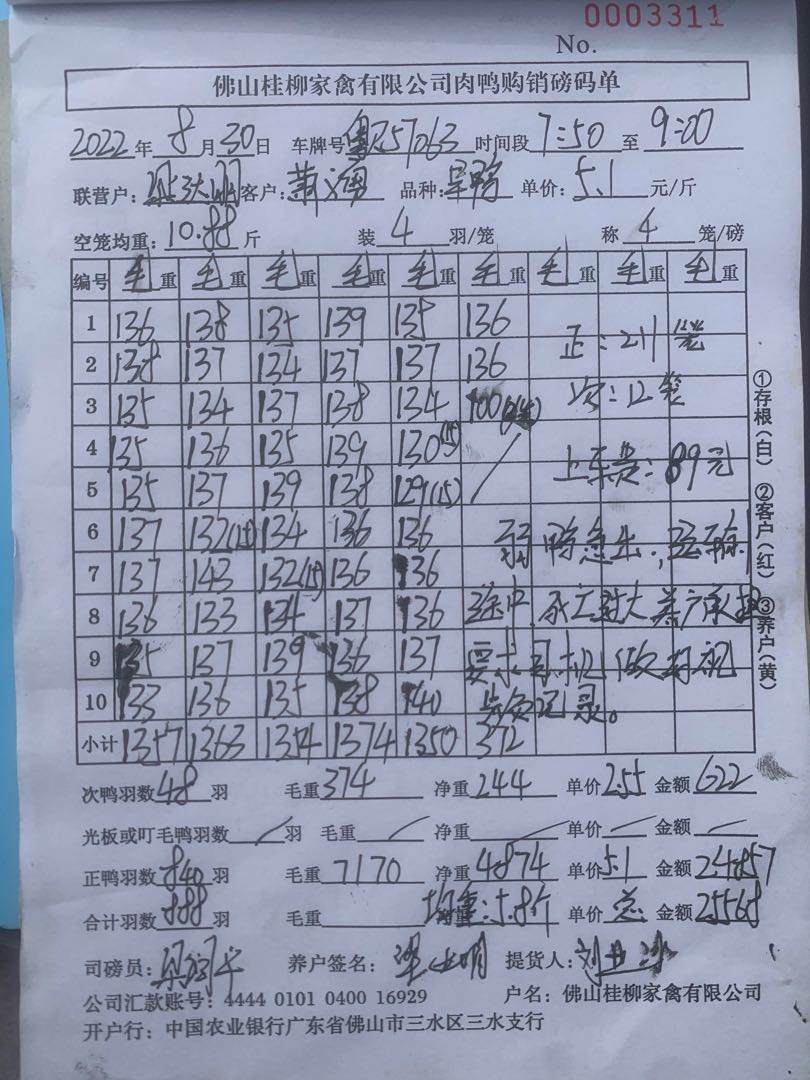 0003311
No.
佛山桂柳家禽有限公司肉鸭购销磅码单
2022年8月30日 车牌号 57063 时间段 7:50 至 9:00
联营户: 客户: 品种: 单价: 5.1 元/斤
空笼均重: 10.88 斤 装 4 羽/笼 称 4 笼/磅
编号 毛重 毛重 毛重 毛重 毛重 毛重 毛重 毛重 毛重
1 136 138 135 139 135 136 正: 211笼
2 138 137 134 137 137 136
3 135 134 137 138 134 100 次: 12笼
4 135 136 135 139 130(15) /
5 135 137 139 138 129(15) 上车费: 89元
6 137 132(15) 134 136 136 鸭急出,
7 137 143 132(15) 136 136
8 136 133 134 137 136 途中死亡
9 135 137 139 136 137 要求司机做
10 133 136 135 138 140 记录。
小计 1357 1363 1354 1374 1350 372
次鸭羽数 48 羽 毛重 374 净重 244 单价 2.55 金额 622
光板或叮毛鸭羽数 / 羽 毛重 / 净重 / 单价 / 金额 /
正鸭羽数 840 羽 毛重 7170 净重 4874 单价 5.1 金额 24857
合计羽数 888 羽 毛重 均重: 5.8斤 单价 总 金额 25568
司磅员: 养户签名: 提货人:
公司汇款账号: 4444 0101 0400 16929 户名: 佛山桂柳家禽有限公司
开户行: 中国农业银行广东省佛山市三水区三水支行
①存根(白) ②客户(红) ③养户(黄)